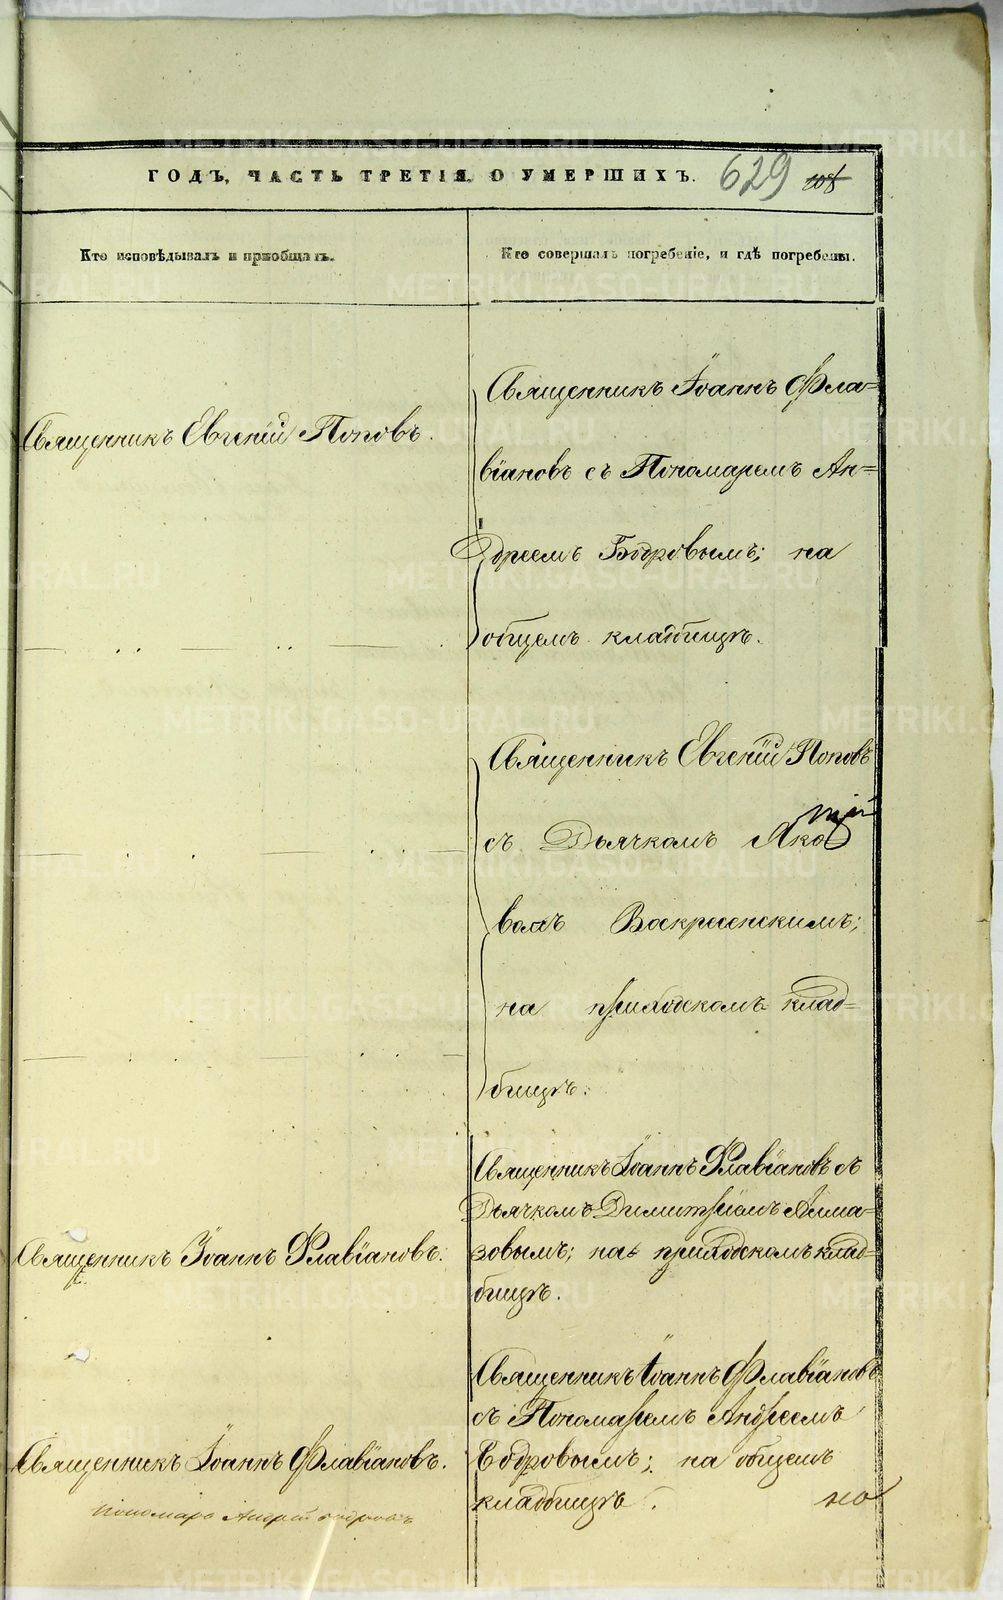 ГОДЪ, ЧАСТЬ ТРЕТІЯ, О УМЕРШИХЪ. 629 108
Кто исповѣдывалъ и пріобщалъ.
Кто совершалъ погребеніе, и гдѣ погребены.
Священникъ Евгеній Поповъ.
Священникъ Іоаннъ Фла=
віановъ съ Пономаремъ Ан=
дреемъ Бодровымъ; на
общемъ кладбищѣ.
Священникъ Евгеній Поповъ
съ Дьячкомъ Яко
вомъ Воскресенскимъ;
на приходскомъ клад=
бищѣ.
Священникъ Іоаннъ Флавіановъ.
Священникъ Іоаннъ Флавіановъ съ
Дьячкомъ Димитріемъ Алма=
зовымъ; на приходскомъ клад=
бищѣ.
Священникъ Іоаннъ Флавіановъ.
пономарь Андрей Бодровъ
Священникъ Іоаннъ Флавіановъ
съ Пономаремъ Андреемъ
Бодровымъ; на общемъ
кладбищѣ.
METRIKI.GASO-URAL.RU